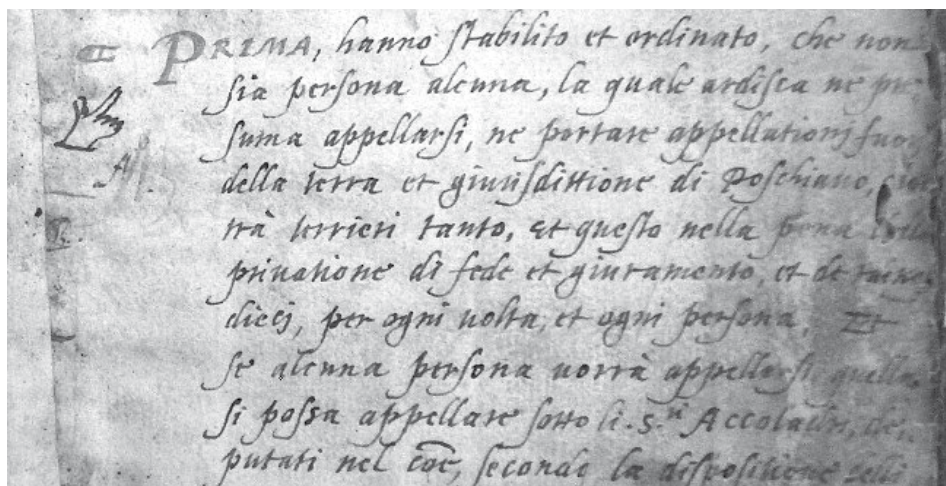 PRIMA, hanno stabilito et ordinato, che non
sia persona alcuna, la quale ardisca ne pre
suma appellarsi, ne portare appellationj fuor
della terra et giurisdittione di Poschiavo, cioè
trà terrieri tanto, et questo nella pena della
privatione di fede et giuramento, et de raines
diecj, per ogni uolta, et ogni persona, Et
se alcuna persona uorrà appellarsi quella
si possa appellare sotto li .S.ri Accoladri, de
putati nel coe, secondo la dispositione delli